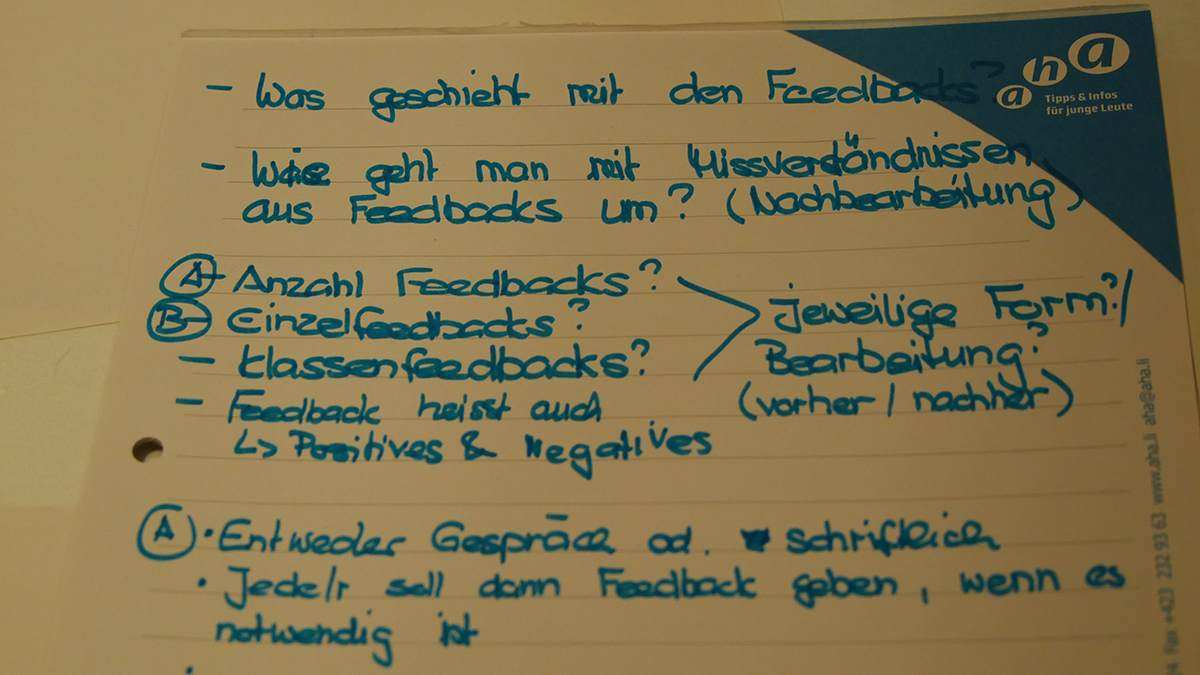 aha
Tipps & Infos
für junge Leute
- Was geschieht mit den Feedbacks?
- Wie geht man mit Missverständnissen
aus Feedbacks um? (Nachbearbeitung)
A - Anzahl Feedbacks?
B - Einzelfeedbacks?
- Klassenfeedbacks?
jeweilige Form?/
Bearbeitung?
(vorher / nachher)
- Feedback heisst auch
↳ Positives & Negatives
A • Entweder Gespräch od. schriftlich
• Jede/r soll dann Feedback geben, wenn es
notwendig ist
Fax +423 232 93 63 www.aha.li aha@aha.li